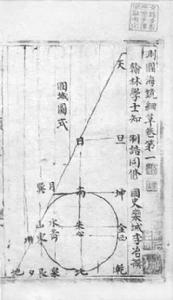 測圓海鏡細草卷第一
翰林學士知 制誥同修 國史欒城李冶撰
圓城圖式
天
日
旦
月
南
坤
巽
朱
心
西
金
青
川
山
東
地
夕
艮
泉
北
乾